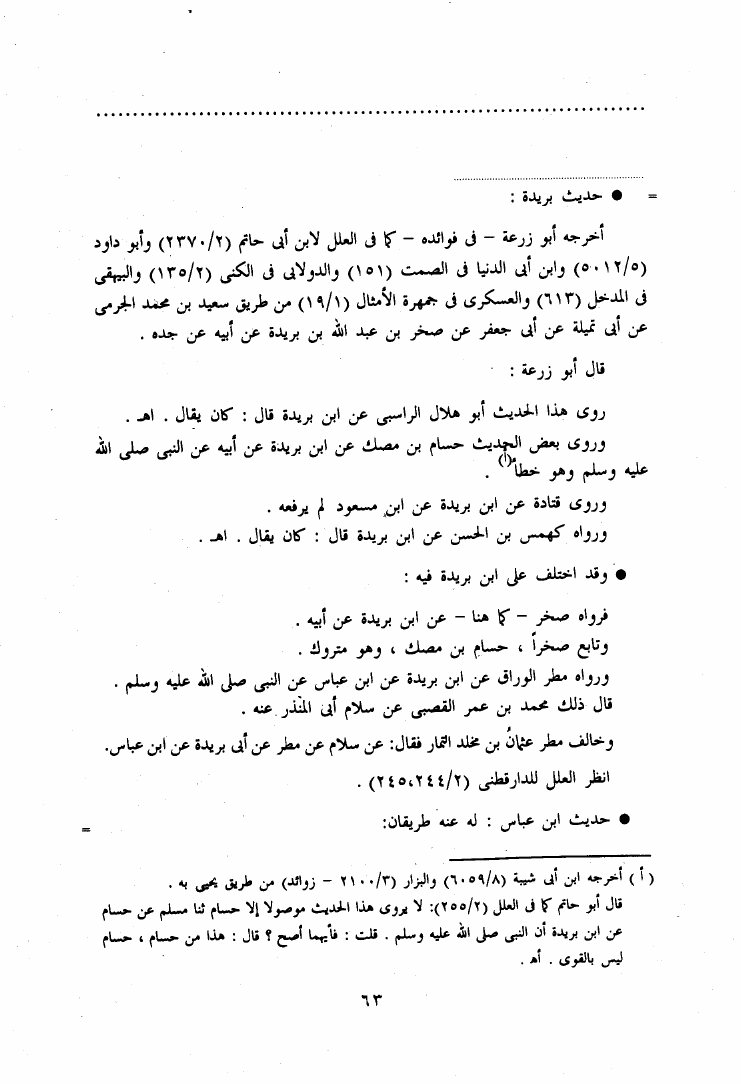 = ● حديث بريدة :
أخرجه أبو زرعة – فى فوائده – كما فى العلل لابن أبى حاتم (٢٣٧٠/٢) وأبو داود
(٥٠١٢/٥) وابن أبى الدنيا فى الصمت (١٥١) والدولابى فى الكنى (١٣٥/٢) والبيهقى
فى المدخل (٦١٣) والعسكرى فى جمهرة الأمثال (١٩/١) من طريق سعيد بن محمد الجرمى
عن أبى تميلة عن أبى جعفر عن صخر بن عبد الله بن بريدة عن أبيه عن جده .
قال أبو زرعة :
روى هذا الحديث أبو هلال الراسبى عن ابن بريدة قال : كان يقال . اهـ .
وروى بعض الحديث حسام بن مصك عن ابن بريدة عن أبيه عن النبى صلى الله
عليه وسلم وهو خطأ(أ) .
وروى قتادة عن ابن بريدة عن ابن مسعود لم يرفعه .
ورواه كهمس بن الحسن عن ابن بريدة قال : كان يقال . اهـ .
● وقد اختلف على ابن بريدة فيه :
فرواه صخر – كما هنا – عن ابن بريدة عن أبيه .
وتابع صخراً ، حسام بن مصك ، وهو متروك .
ورواه مطر الوراق عن ابن بريدة عن ابن عباس عن النبى صلى الله عليه وسلم .
قال ذلك محمد بن عمر القصبى عن سلام أبى المنذر عنه .
وخالف مطر عثمانُ بن مخلد التمار فقال: عن سلام عن مطر عن أبى بريدة عن ابن عباس.
انظر العلل للدارقطنى (٢٤٥،٢٤٤/٢) .
● حديث ابن عباس : له عنه طريقان: =
(أ) أخرجه ابن أبى شيبة (٦٠٥٩/٨) والبزار (٢١٠٠/٣ – زوائد) من طريق يحيى به .
قال أبو حاتم كما فى العلل (٢٥٥/٢): لا يروى هذا الحديث موصولا إلا حسام ثنا مسلم عن حسام
عن ابن بريدة أن النبى صلى الله عليه وسلم . قلت : فأيهما أصح ؟ قال : هذا من حسام ، حسام
ليس بالقوى . أهـ .
٦٣